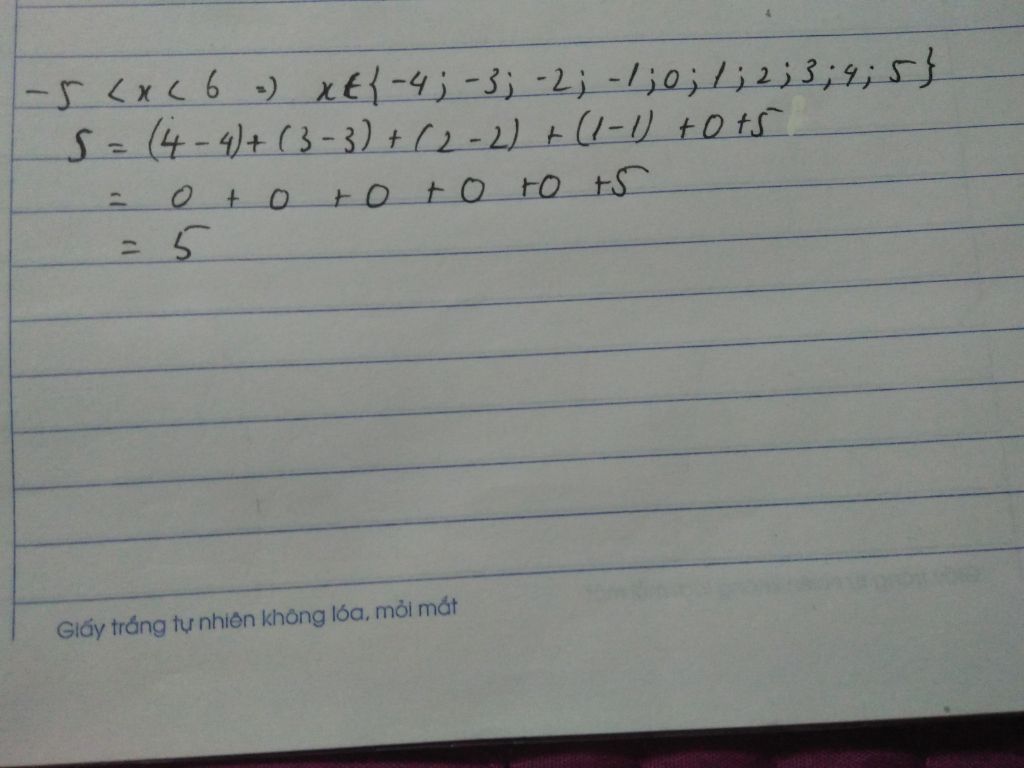 -5 < x < 6 => x ∈ {-4; -3; -2; -1; 0; 1; 2; 3; 4; 5}
S = (4-4) + (3-3) + (2-2) + (1-1) + 0 + 5
= 0 + 0 + 0 + 0 + 0 + 5
= 5
Giấy trắng tự nhiên không lóa, mỏi mắt